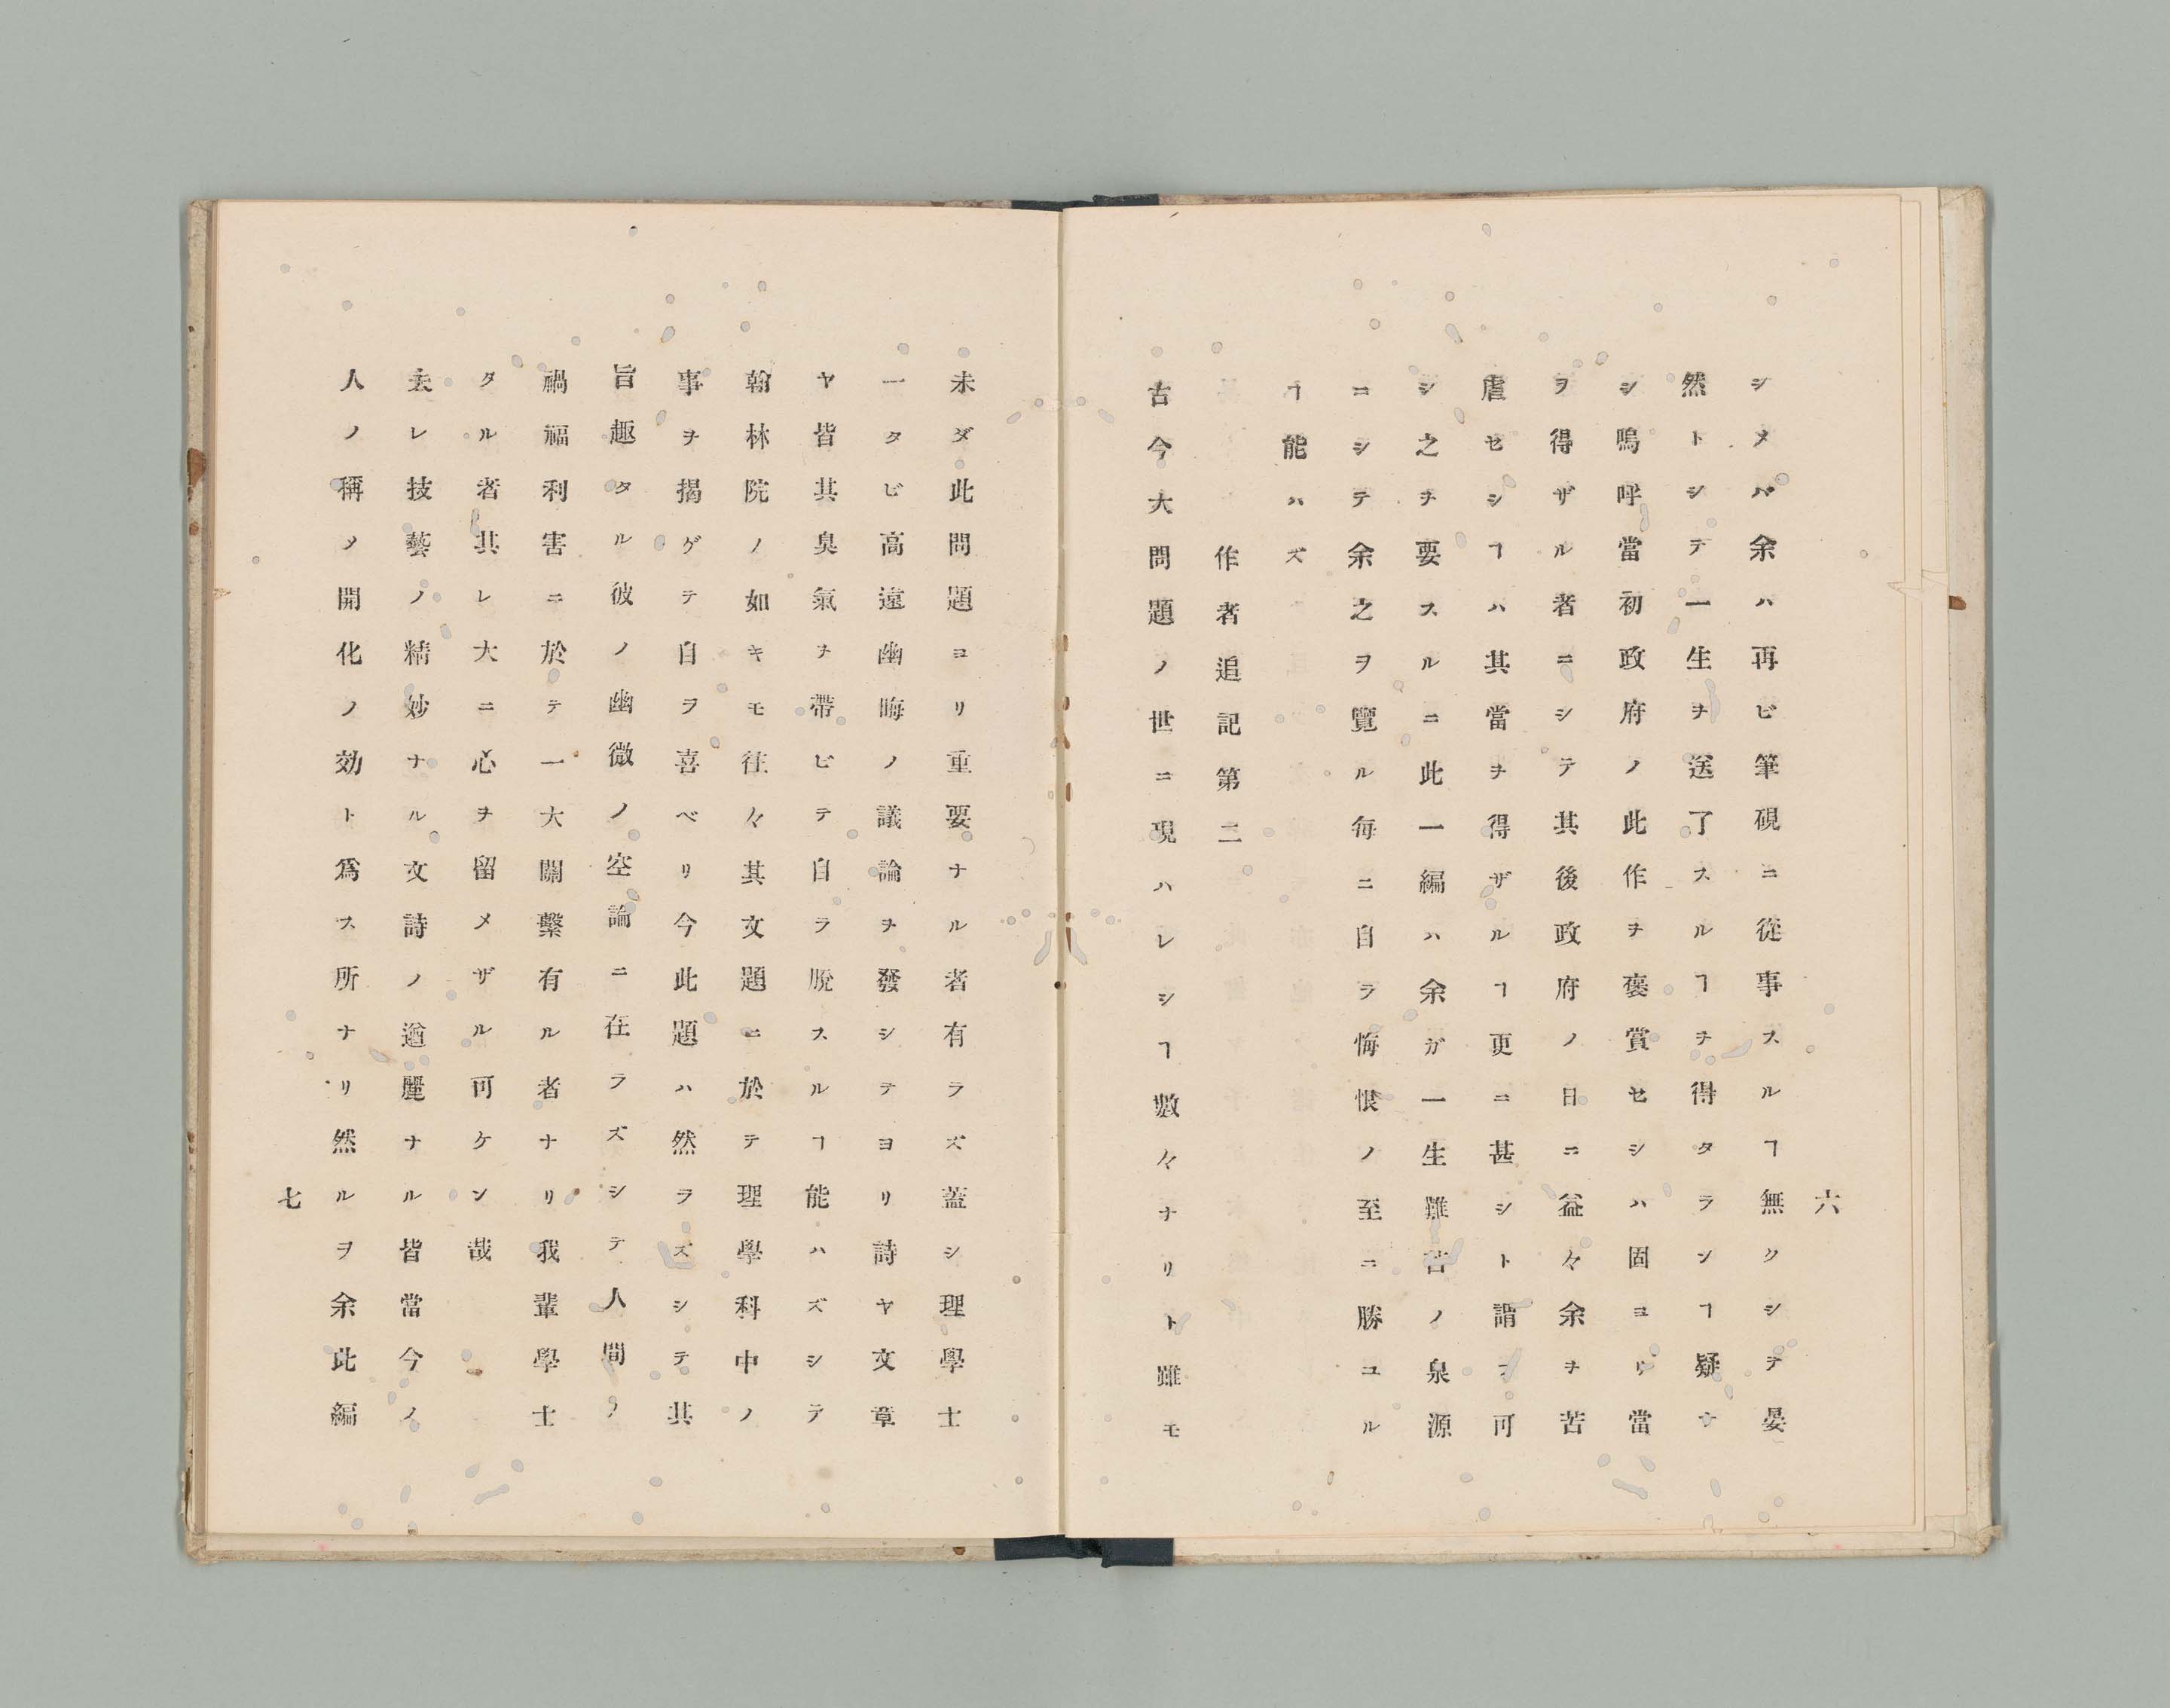 六
シメバ余ハ再ビ筆硯ニ從事スルヿ無クシテ晏
然トシテ一生ヲ送了スルヿヲ得タランヿ疑ナ
シ嗚呼當初政府ノ此作ヲ褒賞セシハ固ヨリ當
ヲ得ザル者ニシテ其後政府ノ日ニ益々余ヲ苦
虐セシヿハ其當ヲ得ザルヿ更ニ甚シト謂フ可
シ之ヲ要スルニ此一編ハ余ガ一生難苦ノ泉源
ニシテ余之ヲ覽ル毎ニ自ラ悔恨ノ至ニ勝ユル
ヿ能ハズ
作者追記第二
古今大問題ノ世ニ現ハレシヿ數々ナリト雖モ
未ダ此問題ヨリ重要ナル者有ラズ蓋シ理學士
一タビ高遠幽晦ノ議論ヲ發シテヨリ詩ヤ文章
ヤ皆其臭氣ヲ帶ビテ自ラ脱スルヿ能ハズシテ
翰林院ノ如キモ往々其文題ニ於テ理學科中ノ
事ヲ揭ゲテ自ヲ喜ベリ今此題ハ然ラズシテ其
旨趣タル彼ノ幽微ノ空論ニ在ラズシテ人間ノ
禍福利害ニ於テ一大關繫有ル者ナリ我輩學士
タル者其レ大ニ心ヲ留メザル可ケンヤ哉
夫レ技藝ノ精妙ナル文詩ノ遒麗ナル皆當今ノ
人ノ稱メ開化ノ効ト爲ス所ナリ然ルヲ余此編
七